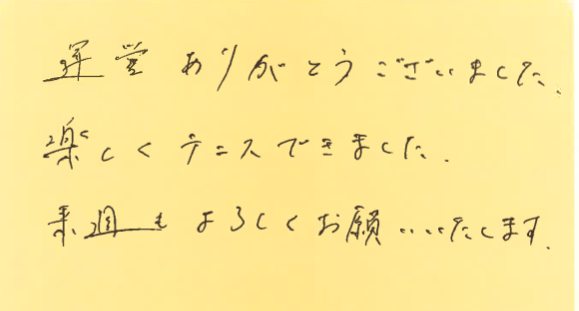 運営ありがとうございました.
楽しくテニスできました.
来週もよろしくお願いいたします.